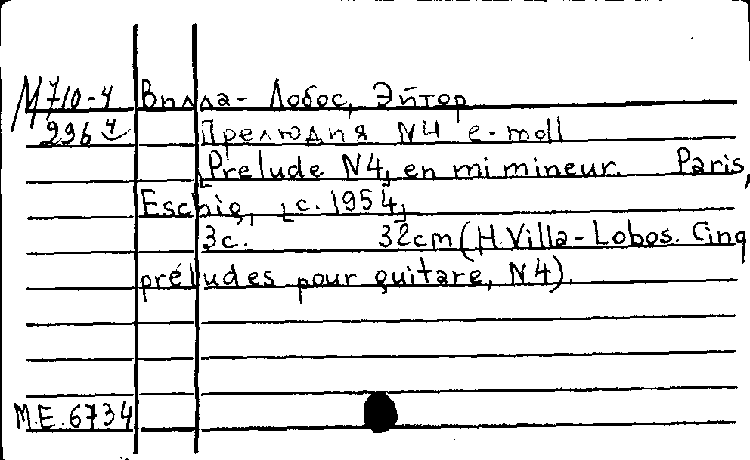 М710-4 Вилла-Лобос, Эйтор
Прелюдия N4 e-moll
[Prelude N4, en mi mineur. Paris,
Eschig, [c. 1954]
3с. 32cm (H. Villa-Lobos. Cinq
préludes pour guitare, N4).
M.E. 6734